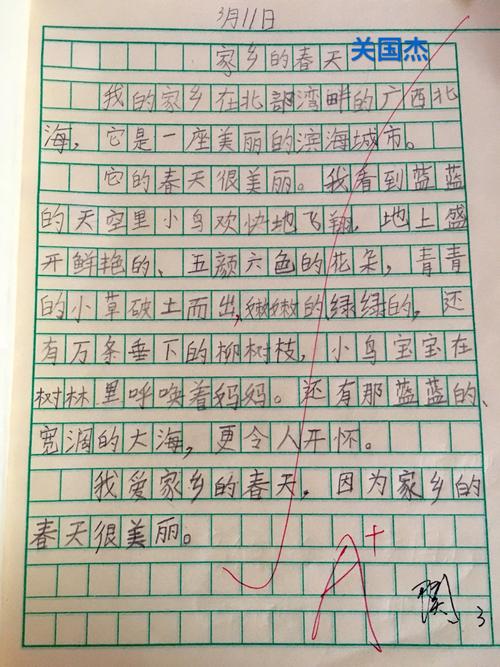 3月11日
家乡的春天 关国杰
我的家乡在北部湾畔的广西北
海,它是一座美丽的滨海城市。
它的春天很美丽。我看到蓝蓝
的天空里小鸟欢快地飞翔,地上盛
开鲜艳的、五颜六色的花朵,青青
的小草破土而出,嫩嫩的绿绿的,还
有万条垂下的柳树枝,小鸟宝宝在
树林里呼唤着妈妈。还有那蓝蓝的、
宽阔的大海,更令人开怀。
我爱家乡的春天,因为家乡的
春天很美丽。
A+
3